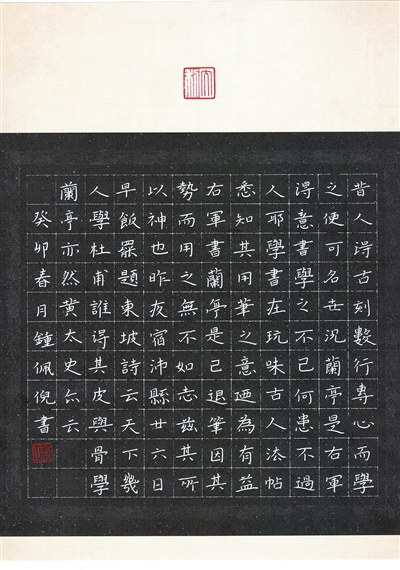 昔人得古刻數行專心而學
之便可名世況蘭亭是右軍
得意書學之不已何患不過
人耶學書在玩味古人法帖
悉知其用筆之意廼為有益
右軍書蘭亭是已退筆因其
勢而用之無不如志茲其所
以神也昨夜宿沛縣廿六日
早飯罷題東坡詩云天下幾
人學杜甫誰得其皮與骨學
蘭亭亦然黃太史亦云
癸卯春月鍾佩倪書